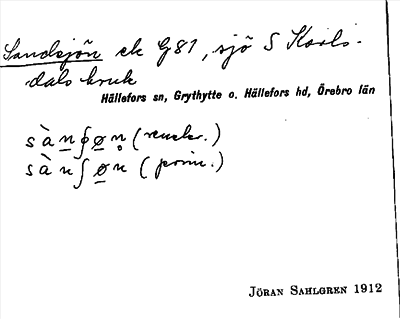 Sandsjön ek G81, sjö S Karls-
dals bruk
Hällefors sn, Grythytte o. Hällefors hd, Örebro län
sànʃøn̥ (
sànʃøn (prim.)
JÖRAN SAHLGREN 1912